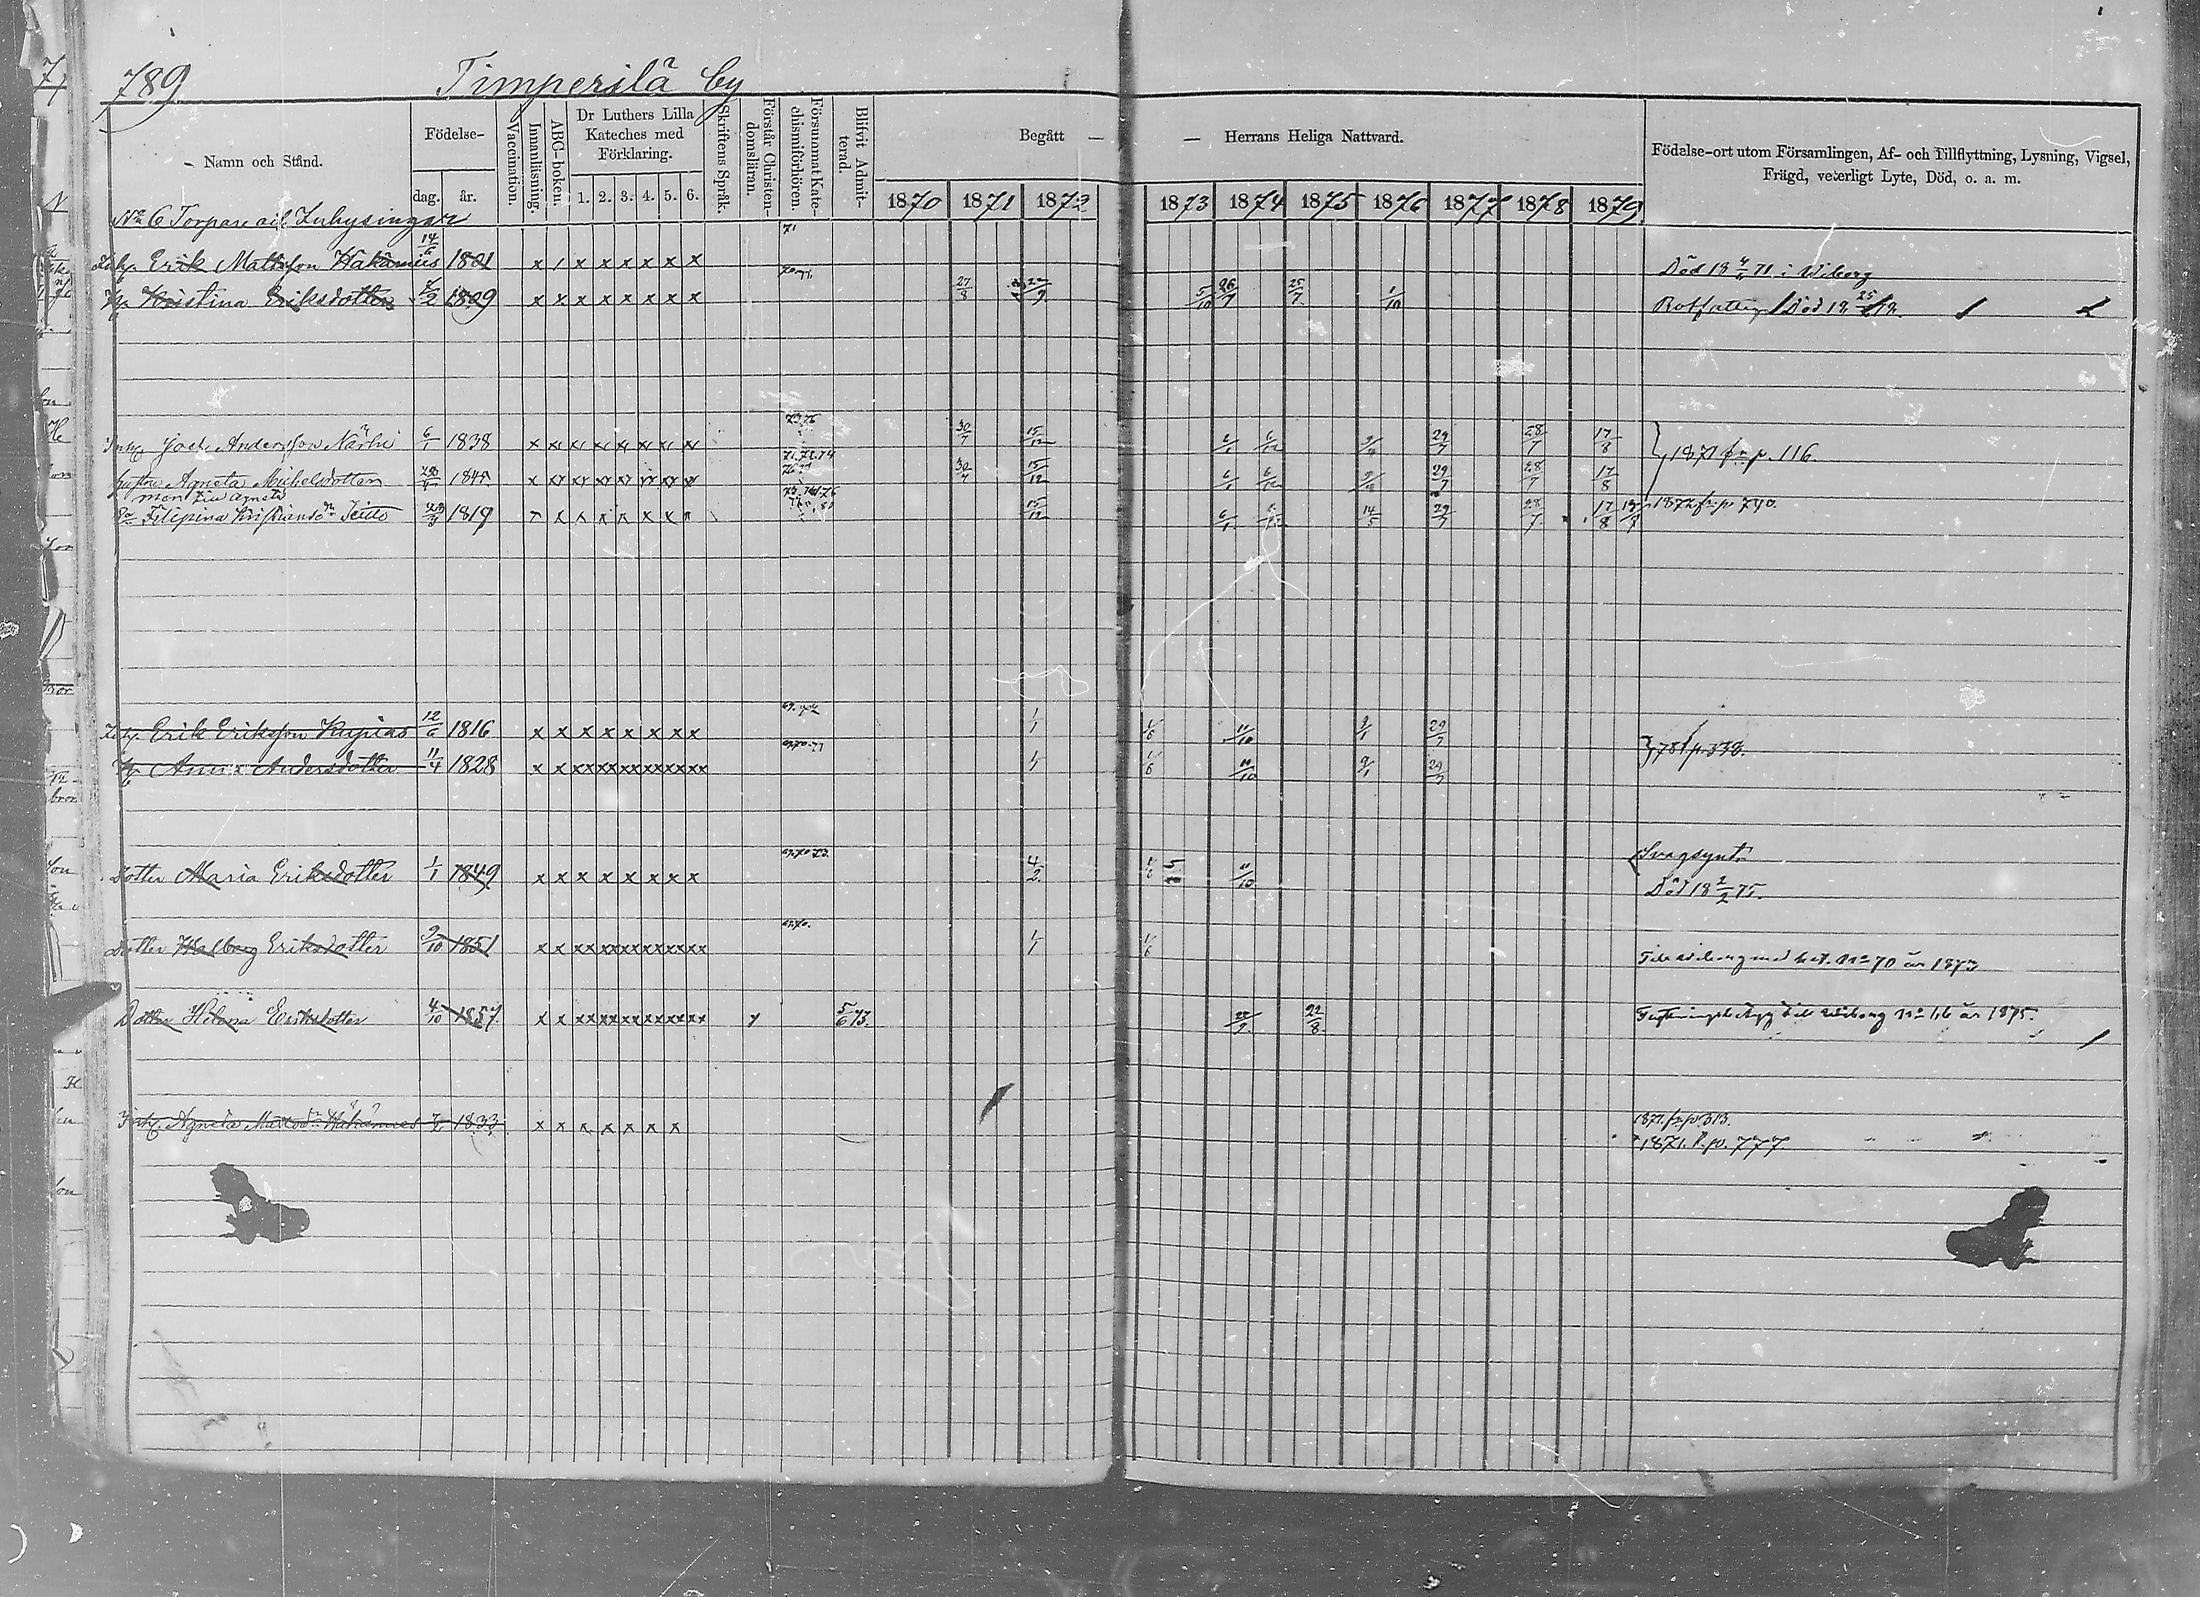 789
Timperilä by
Namn och Stånd.
Födelse-
dag. år.
Vaccination.
Innanläsning.
ABC-boken.
Dr Luthers Lilla Kateches med Förklaring.
1. 2. 3. 4. 5. 6.
Skriftens Språk.
Förstår Christendomsläran.
Försummat Katechismiförhören.
Blifvit Admitterad.
Begått — — Herrans Heliga Nattvard.
1870 1871 1872 1873 1874 1875 1876 1877 1878 1879
Födelse-ort utom Församlingen, Af- och Tillflyttning, Lysning, Vigsel,
Frägd, veterligt Lyte, Död, o. a. m.
No 6 Torpare och Inhysingar
71
Erik Mattsson Häkämies 14/5 1801 x / x x x x x x Död 18 4/6 71 i Wiborg
Hu Kristina Eriksdotter 1809 x x x x x x x x 27/8 22/9 5/10 26/7 25/7 1/10 Död 18 25/
73 76
Inh Andersson Närhi 6/1 1838 30/7 15/12 6/1 6/12 29/7 28/7 17/8 1871 fr. p. 116
71.72.74
hustru Agneta Michelsdotter 1844 30/7 15/12 6/1 6/12 29/7 28/7 17/8
Filipina 1819 15/12 6/1 14/5 29/7 28/7 17/8 1872 fr p 790.
69. 72
Inh. Erik Eriksson Kupias 12/6 1816 x x x x x x x x 1/1 1/6 11/10 9/1 29/7
69.70.71
Hu Anna Andersdotter 11/4 1828 x x xx xx xx xx xx xx 1/1 1/6 11/10 9/1 29/7 78 t p. 338.
Dotter Maria Eriksdotter 1/1 1849 x x x x x x x x 4/2 1/6 11/10 Svagsynt.
Död 18 2/2 75.
69.70.
Dotter Walborg Eriksdotter 9/10 1851 x x xx xx xx xx xx xx 1/1 1/6 Till Wiborg med bet. No 70 år 1873
Dotter Helena Eriksdotter 4/10 1857 x x xx xx xx xx xx xx 5/6 73. 22/8 Flyttningsbetyg till Wiborg No 116 år 1875.
Inh. Agneta Matsdr Häkämies 1833 x x x x x x x x 1871. fr p. 313.
1871. t. p. 777.